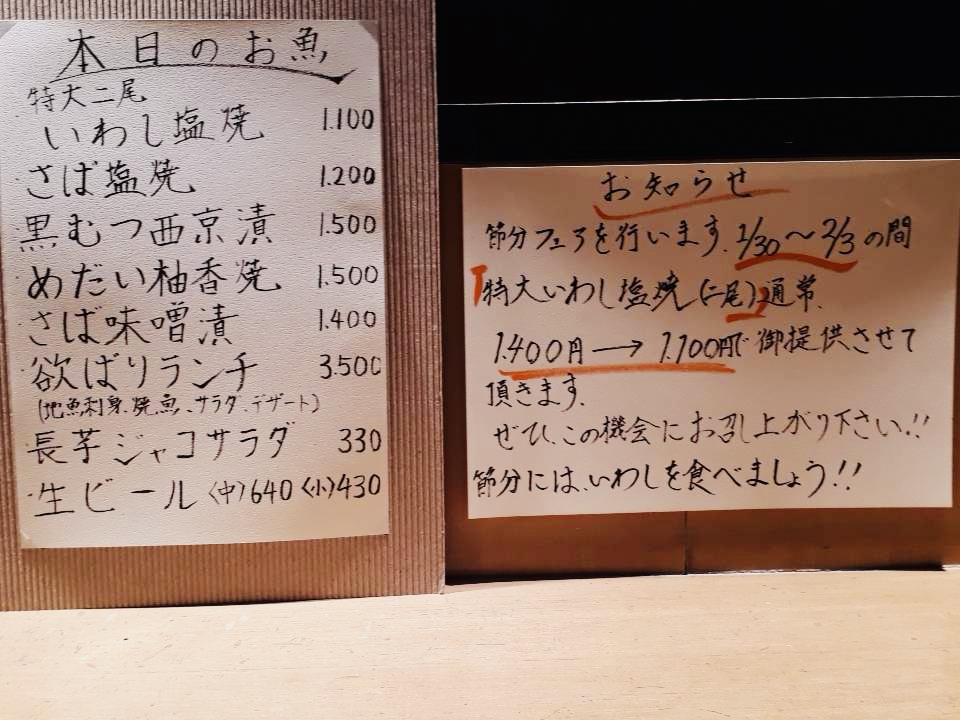 本日のお魚
特大二尾
いわし塩焼 1.100
さば塩焼 1.200
黒むつ西京漬 1.500
めだい柚香焼 1.500
さば味噌漬 1.400
欲ばりランチ 3.500
(地魚刺身、焼魚、サラダ、デザート)
長芋ジャコサラダ 330
生ビール〈中〉640〈小〉430
お知らせ
節分フェアを行います。1/30〜2/3の間
特大いわし塩焼(二尾)通常
1.400円→1.100円で御提供させて
頂きます。
ぜひ、この機会にお召し上がり下さい!!
節分には、いわしを食べましょう!!